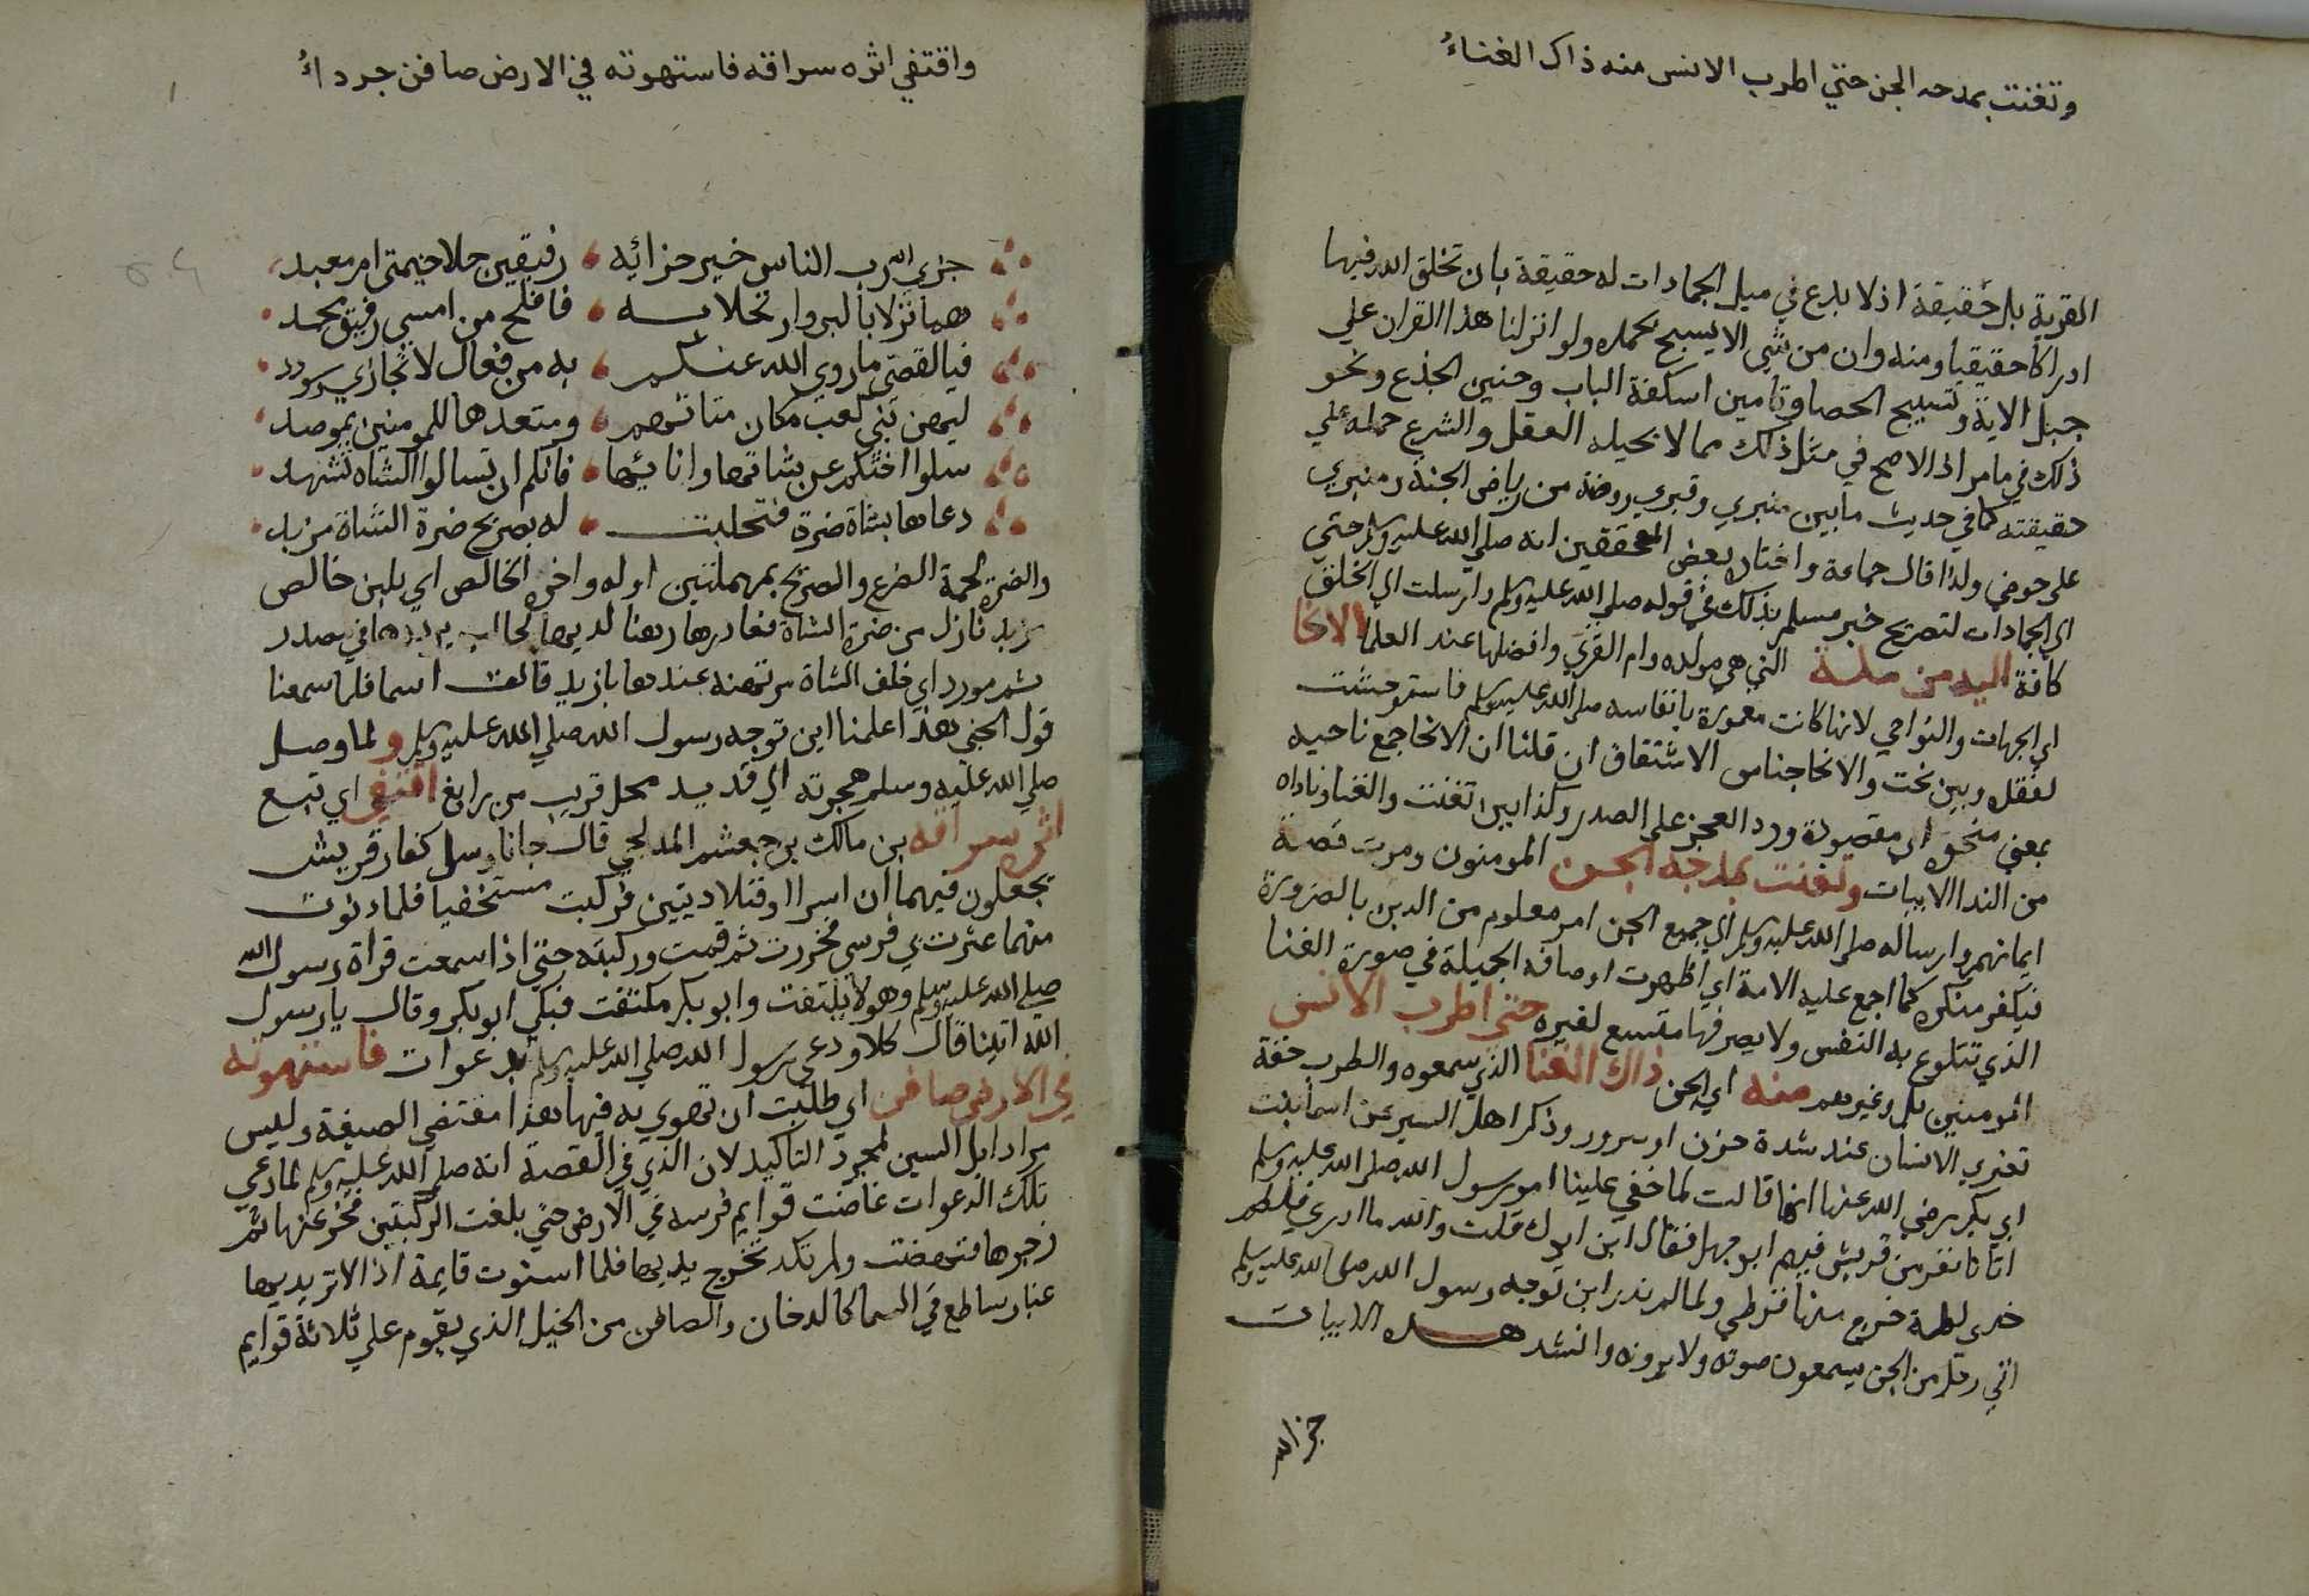 وتغنت بمدحه الجن حتي اطرب الانس منه ذاك الغناءُ
القرية بل حقيقة اذ لا بدع في ميل الجمادات له حقيقة بان تخلق الله فيها
ادراكا حقيقيا ومنه وان من شي الا يسبح بحمده ولو انزلنا هذا القران علي
جبل الاية وتسبيح الحصا وتامين اسكفة الباب وحنين الجذع ونحو
ذلك في مامر اذ الاصح في مثل ذلك مما لا يحيله العقل والشرع حمله علي
حقيقته كما في حديث مابين منبري وقبري روضة من رياض الجنة ومنبري
علي حوضي ولذا قال جماعة واختاره بعض المحققين انه صلي الله عليه وسلم حتي
الي الجمادات لتصريح خبر مسلم بذلك في قوله صلي الله عليه وسلم وارسلت الي الخلق
كافة اليه من مكة التي هي مولده وام القري وافضلها عند العلما الانحا
اي الجهات والنواحي لانها كانت معمورة بانفاسه صلي الله عليه وسلم فاستوحشت
لفقده وبين نحت والانحا جناس الاشتقاق ان قلنا ان الانحا جمع ناحيه
بمعني منحوة اي مقصودة ورد العجز علي الصدر وكذا بين تغنت والغنا وناداه
من الندا الابيات وتغنت بمدحه الجن المومنون ومرت قصة
ايمانهم وارساله صلي الله عليه وسلم الي جميع الجن امر معلوم من الدين بالضرورة
فيكفر منكره كما اجمع عليه الامة اي اظهرت اوصافه الجميلة في صورة الغنا
الذي تتلوع به النفس ولا يصر فيها متسع لغيره حتي اطرب الانس
المومنين بل وغيرهم منه اي الجن ذاك الغنا الذي سمعوه والطرب خفة
تعتري الانسان عند شدة حزن او سرور وذكر اهل السير عن اسما بنت
ابي بكر رضي الله عنها انها قالت لما خفي علينا امر رسول الله صلي الله عليه وسلم
اتانا نفر من قريش فيهم ابو جهل فقال اين ابوك قلت والله ما ادري فلطم
خدي لطمة خرج منها قرطي ولما لم ندر اين توجه رسول الله صلي الله عليه وسلم
اتي رجل من الجن يسمعون صوته ولا يرونه وانشد هذه الابيات
جز الله
واقتفي اثره سراقه فاستهوته في الارض صافن جرداءُ
جزي الله رب الناس خير جزائه رفيقين حلا خيمتي ام معبد
هما نزلا بالبر وارتحلا به فافلح من امسي رفيق محمد
فيا لقصي ما روي الله عنكم به من فعال لا تجازي وسودد
ليهن بني كعب مكان فتاتهم ومقعدها للمومنين بمرصد
سلوا اختكم عن شاتها وانائها فانكم ان تسالوا الشاه تشهد
دعاها بشاة ضرة فتحلبت له بصريح ضرة الشاة مزبد
والضرة لحمة الضرع والصريح بمهملتين اوله واخره الخالص اي بلبن خالص
مزبد نازل من ضرة الشاة فغادرها رهنا لديها لحالب يرددها في مصدر
ثم مورد اي خلف الشاة مرتهنه عندها بازيد قالت اسما فلما سمعنا
قول الجني هذا علمنا اين توجه رسول الله صلي الله عليه وسلم ولما وصل
صلي الله عليه وسلم هجرته الي قديد محل قريب من رابغ اقتفي اي تبع
اثره سراقه بن مالك بن جعشم المدلجي قال جانا رسل كفار قريش
يجعلون فيهما ان اسرا او قتلا ديتين فركبت مستخفيا فلما دنوت
منهما عثرت بي فرسي فخررت ثم قمت وركبته حتي اذا سمعت قراة رسول الله
صلي الله عليه وسلم وهو لا يلتفت وابو بكر ملتفت فبكي ابو بكر وقال يا رسول
الله اتينا قال كلا ودعي رسول الله صلي الله عليه وسلم بدعوات فاستهوته
في الارض صافن اي طلبت ان تهوي به فيها هذا مقتضي الصيغة وليس
مرادا بل السين لمجرد التاكيد لان الذي في القصة انه صلي الله عليه وسلم لما دعي
تلك الدعوات غاضت قوايم فرسه في الارض حتي بلغت الركبتين فخر عنها ثم
زجرها فنهضت ولم تكد تخرج يديها فلما استوت قايمة اذا لاثر يديها
غبار ساطع في السما كالدخان والصافن من الخيل الذي يقوم علي ثلاثة قوايم